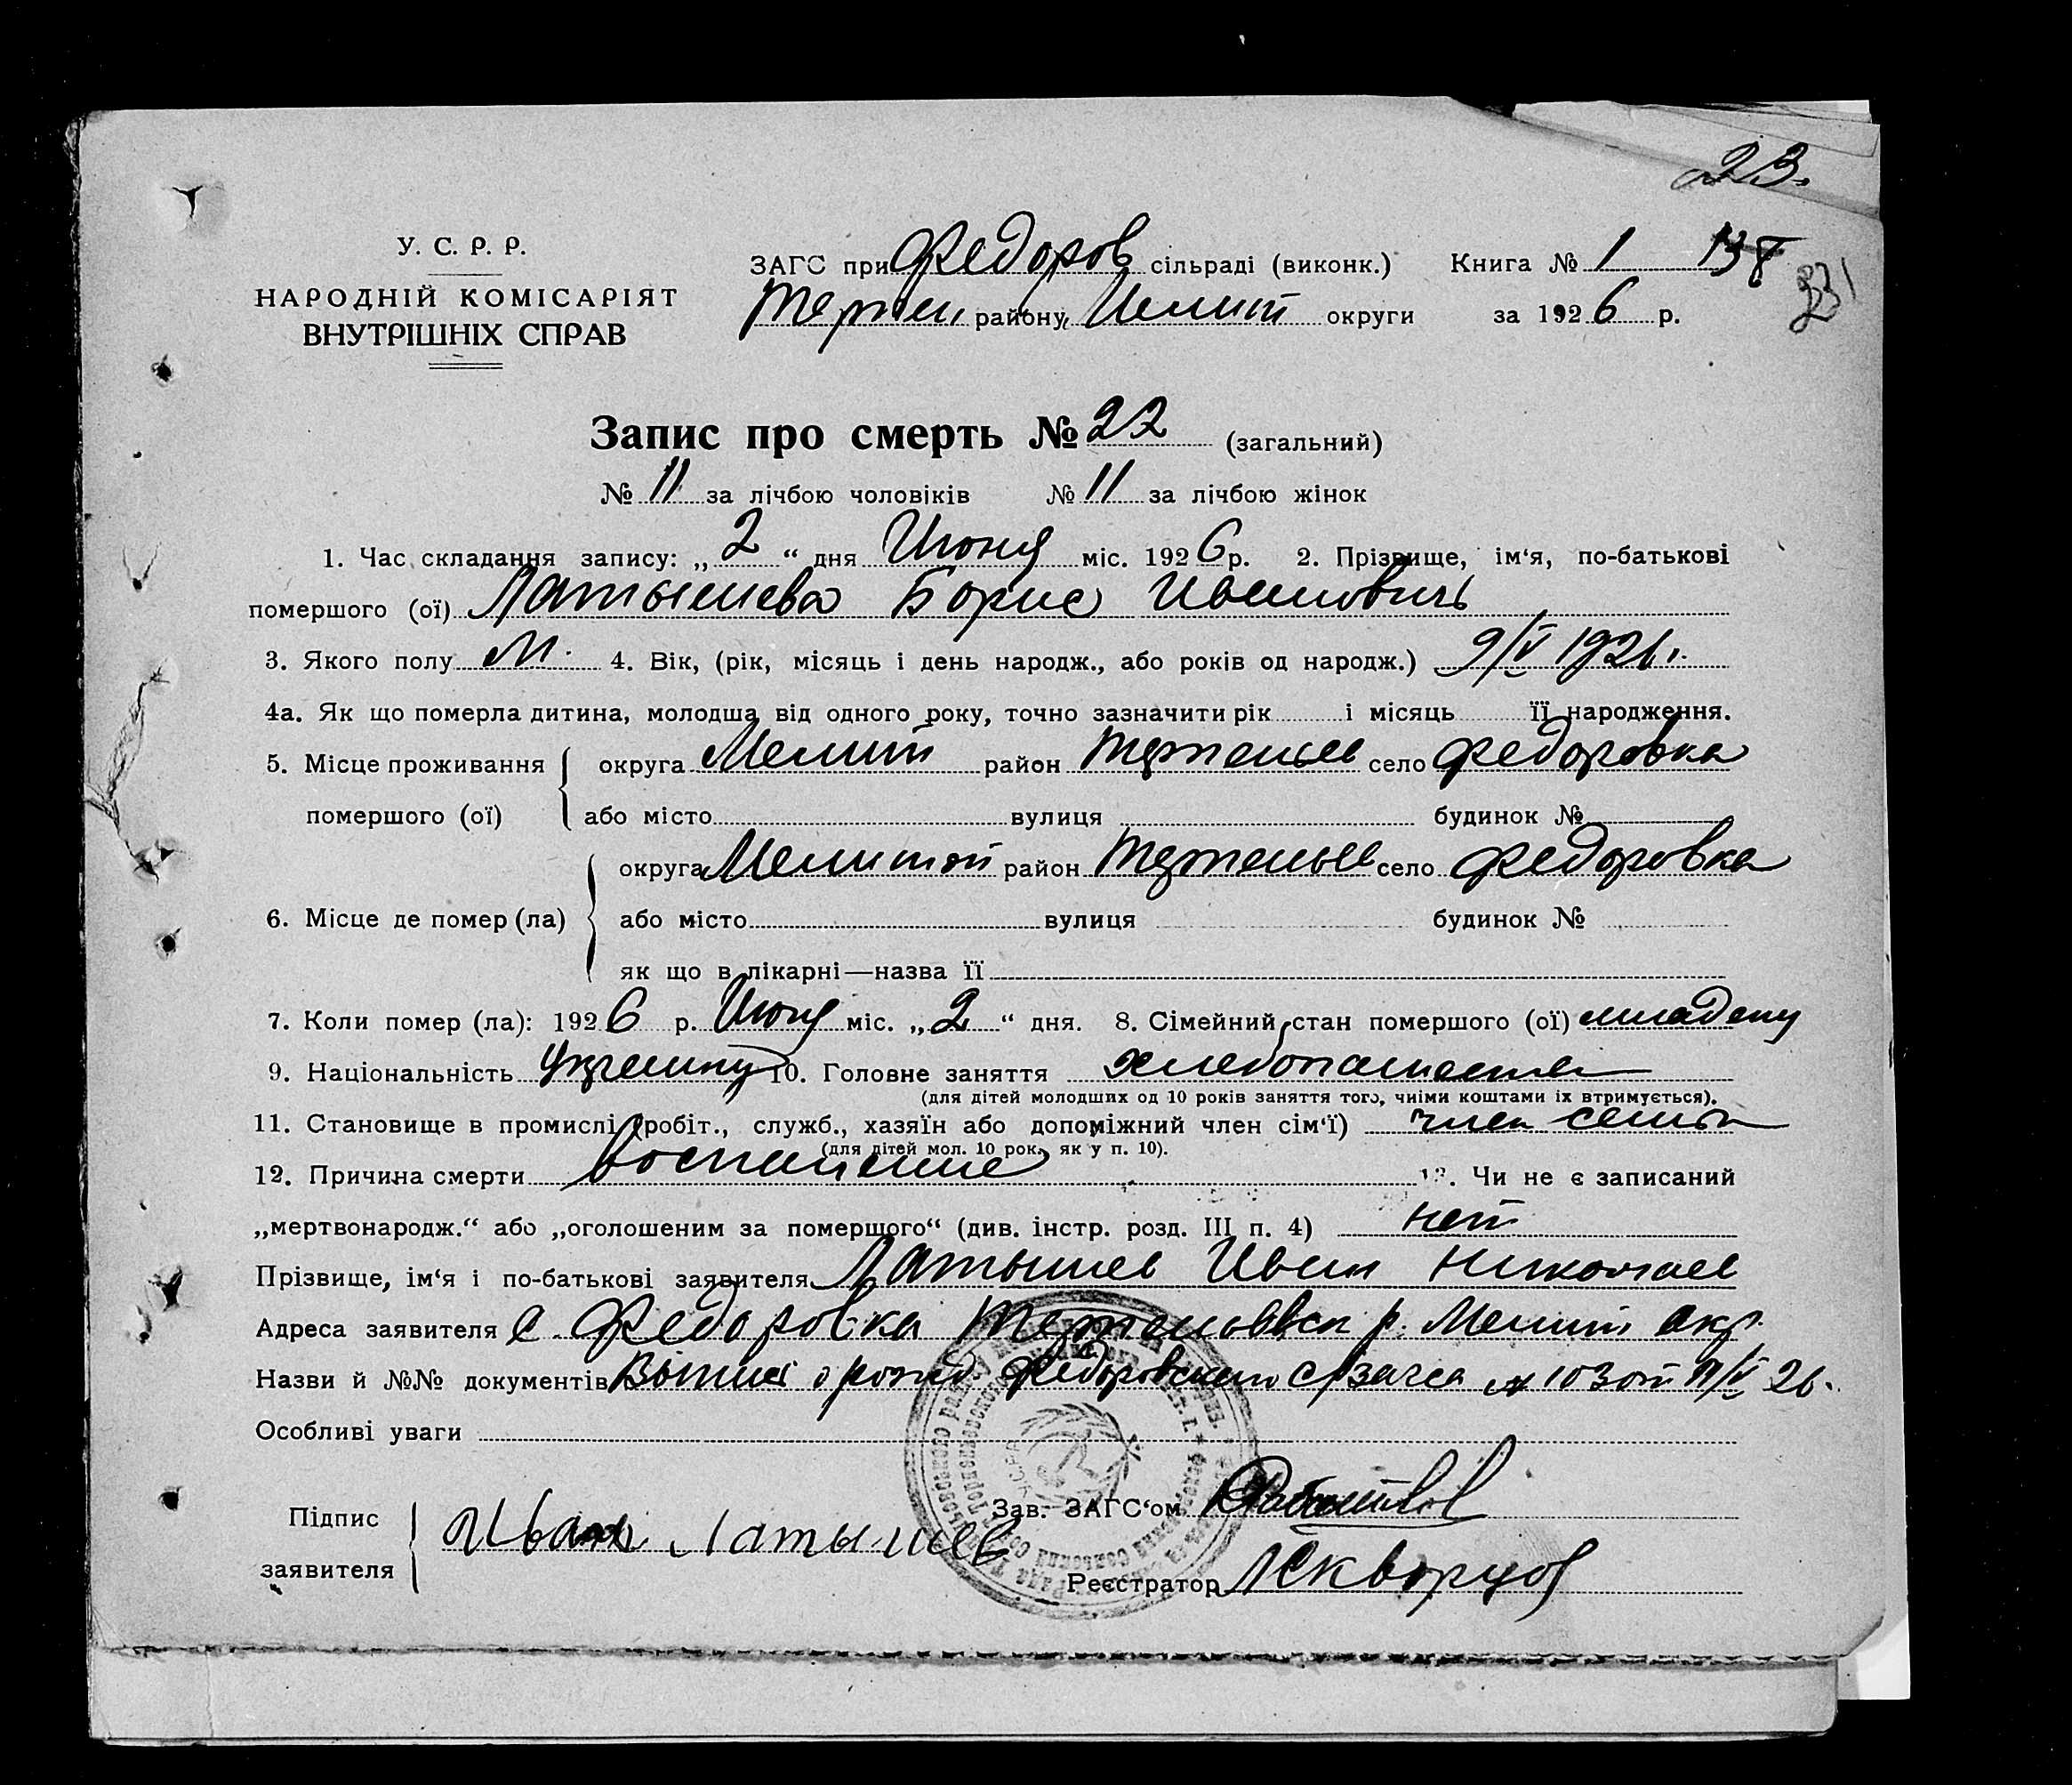 23.
У. С. Р. Р.
НАРОДНІЙ КОМІСАРІЯТ
ВНУТРІШНІХ СПРАВ
ЗАГС при Федоров сільраді (виконк.) Книга № 1 138
району Мелит округи за 1926 р.
231
Запис про смерть № 22 (загальний)
№ 11 за лічбою чоловіків № 11 за лічбою жінок
1. Час складання запису: „2“ дня Июня міс. 1926 р. 2. Прізвище, ім‘я, по-батькові
помершого (ої) Латышева Борис Иванович
3. Якого полу М. 4. Вік, (рік, місяць і день народж., або років од народж.) 9/V 1926 г.
4а. Як що померла дитина, молодша від одного року, точно зазначити рік і місяць її народження.
5. Місце проживання помершого (ої) округа Мелит район село Федоровка
або місто вулиця будинок №
6. Місце де помер (ла) округа Мелитоп район село Федоровка
або місто вулиця будинок №
як що в лікарні—назва її
7. Коли помер (ла): 1926 р. Июня міс. „2“ дня. 8. Сімейний стан помершого (ої) младенц
9. Національність 10. Головне заняття хлебопашество
(для дітей молодших од 10 років заняття того, чиїми коштами їх втримується).
11. Становище в промислі (робіт., служб., хазяїн або допоміжний член сім‘ї) член семьи
(для дітей мол. 10 рок. як у п. 10).
12. Причина смерти воспаление 13. Чи не є записаний
„мертвонародж.“ або „оголошеним за помершого“ (див. інстр. розд. III п. 4) нет
Прізвище, ім‘я і по-батькові заявителя Латышев Иван Николаев
Адреса заявителя с. Федоровка р. Мелит окр.
Назви й №№ документів о рожд Федоровского с/загса № 103 от V 26.
Особливі уваги
Підпис заявителя Иван Латышев
Зав. ЗАГС‘ом
Реєстратор Скворцов